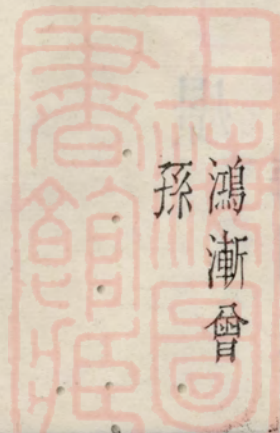 鴻漸曾
孫
上海圖
書館